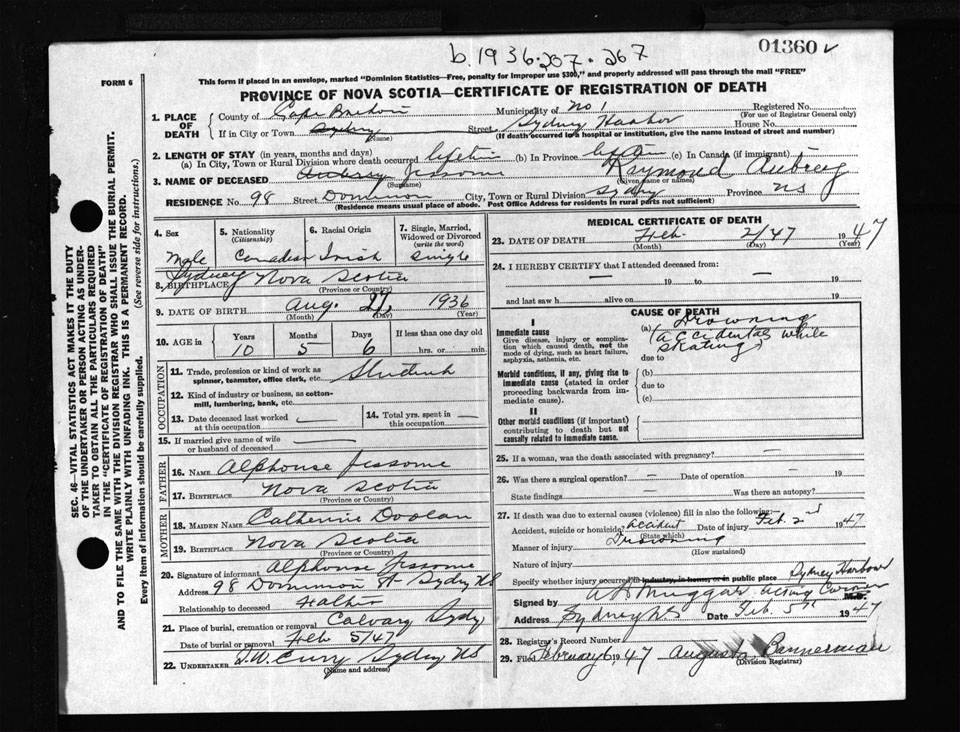 b. 1936.237.267
01360
FORM 6
This form if placed in an envelope, marked "Dominion Statistics—Free, penalty for improper use $300," and properly addressed will pass through the mail "FREE"
PROVINCE OF NOVA SCOTIA—CERTIFICATE OF REGISTRATION OF DEATH
SEC. 46—VITAL STATISTICS ACT MAKES IT THE DUTY OF THE UNDERTAKER OR PERSON ACTING AS UNDERTAKER TO OBTAIN ALL THE PARTICULARS REQUIRED IN THE "CERTIFICATE OF REGISTRATION OF DEATH" AND TO FILE THE SAME WITH THE DIVISION REGISTRAR WHO SHALL ISSUE THE BURIAL PERMIT.
WRITE PLAINLY WITH UNFADING INK. THIS IS A PERMANENT RECORD.
Every item of information should be carefully supplied. (See reverse side for instructions.)
1. PLACE OF DEATH
County of Cape Breton Municipality of No 1 Registered No.
(For use of Registrar General only)
If in City or Town Sydney Street Sydney Harbor
(Name) (If death occurred in a hospital or institution, give the name instead of street and number)
2. LENGTH OF STAY (in years, months and days)
(a) In City, Town or Rural Division where death occurred lifetime (b) In Province lifetime (c) In Canada (if immigrant)
3. NAME OF DECEASED Aubrey Jessome Raymond Aubrey
(Surname) (Given name or names)
RESIDENCE No. 98 Street Dominion City, Town or Rural Division Sydney Province NS
(Residence means usual place of abode. Post Office Address for residents in rural parts not sufficient)
4. Sex Male
5. Nationality (Citizenship) Canadian
6. Racial Origin Irish
7. Single, Married, Widowed or Divorced (write the word) single
8. BIRTHPLACE Sydney Nova Scotia
(Province or Country)
9. DATE OF BIRTH Aug. 27, 1936
(Month) (Day) (Year)
10. AGE in Years 10 Months 5 Days 6 If less than one day old
hrs. or min.
OCCUPATION
11. Trade, profession or kind of work as spinner, teamster, office clerk, etc. Student
12. Kind of industry or business, as cotton-mill, lumbering, bank, etc.
13. Date deceased last worked at this occupation
14. Total yrs. spent in this occupation
15. If married give name of wife or husband of deceased
FATHER
16. NAME Alphonse Jessome
17. BIRTHPLACE Nova Scotia
(Province or Country)
MOTHER
18. MAIDEN NAME Catherine Doolan
19. BIRTHPLACE Nova Scotia
(Province or Country)
20. Signature of informant Alphonse Jessome
Address 98 Dominion St Sydney NS
Relationship to deceased Father
21. Place of burial, cremation or removal Calvary Sydney
Date of burial or removal Feb 5/47
22. UNDERTAKER Curry Sydney NS
(Name and address)
MEDICAL CERTIFICATE OF DEATH
23. DATE OF DEATH Feb 2/47 1947
(Month) (Day) (Year)
24. I HEREBY CERTIFY that I attended deceased from:
— 19 to — 19
and last saw h alive on 19
CAUSE OF DEATH
I
Immediate cause
Give disease, injury or complication which caused death, not the mode of dying, such as heart failure, asphyxia, asthenia, etc.
(a) Drowning
(accidental while
skating)
due to
Morbid conditions, if any, giving rise to immediate cause (stated in order proceeding backwards from immediate cause).
(b)
due to
(c)
II
Other morbid conditions (if important) contributing to death but not causally related to immediate cause.
25. If a woman, was the death associated with pregnancy? —
26. Was there a surgical operation? — Date of operation — 19
State findings Was there an autopsy?
27. If death was due to external causes (violence) fill in also the following:
Accident, suicide or homicide? accident Date of injury Feb. 2nd 1947
(State which)
Manner of injury Drowning
(How sustained)
Nature of injury
Specify whether injury occurred in industry, in home, or in public place Sydney Harbour
Signed by Acting Coroner M.D.
Address Sydney N.S Date Feb 5th 1947
28. Registrar's Record Number
29. Filed February 6 1947 Augusta Bannerman
(Division Registrar)